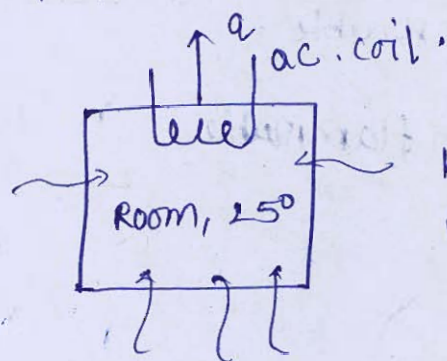 q
ac. coil.
Room, 25°